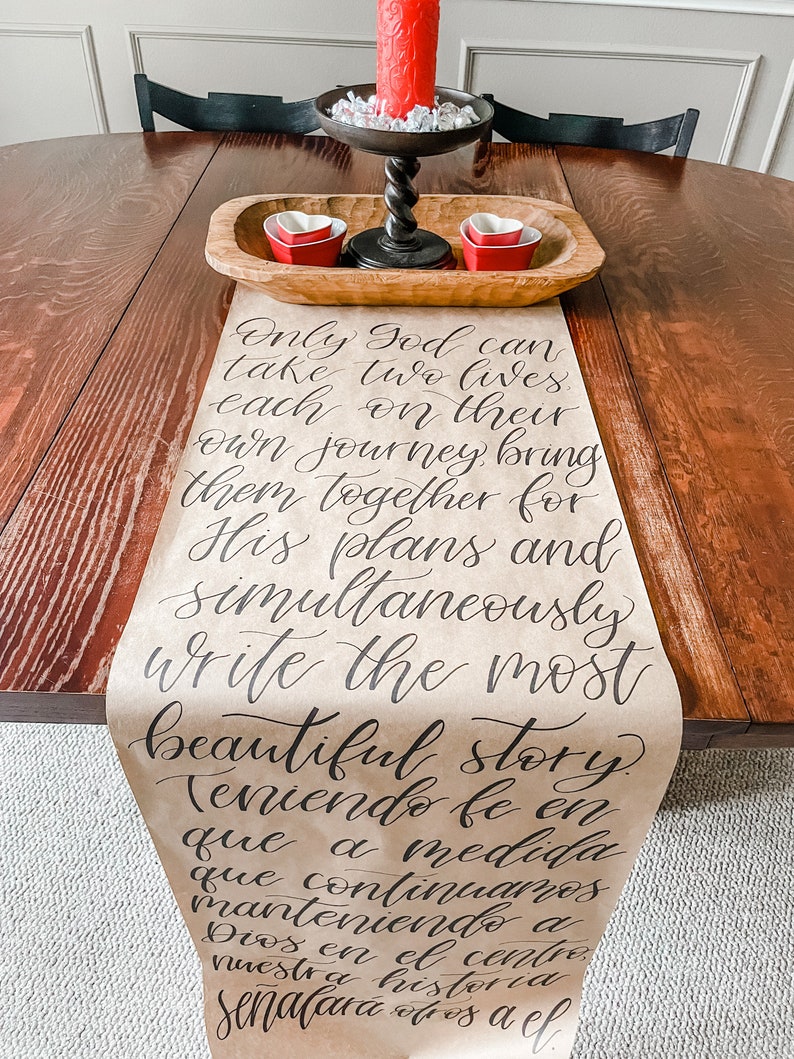 Only God can
take two lives,
each on their
own journey, bring
them together for
His plans and
simultaneously
write the most
beautiful story.
Teniendo fe en
que a medida
que continuamos
manteniendo a
Dios en el centro,
nuestra historia
señalará otros a el.